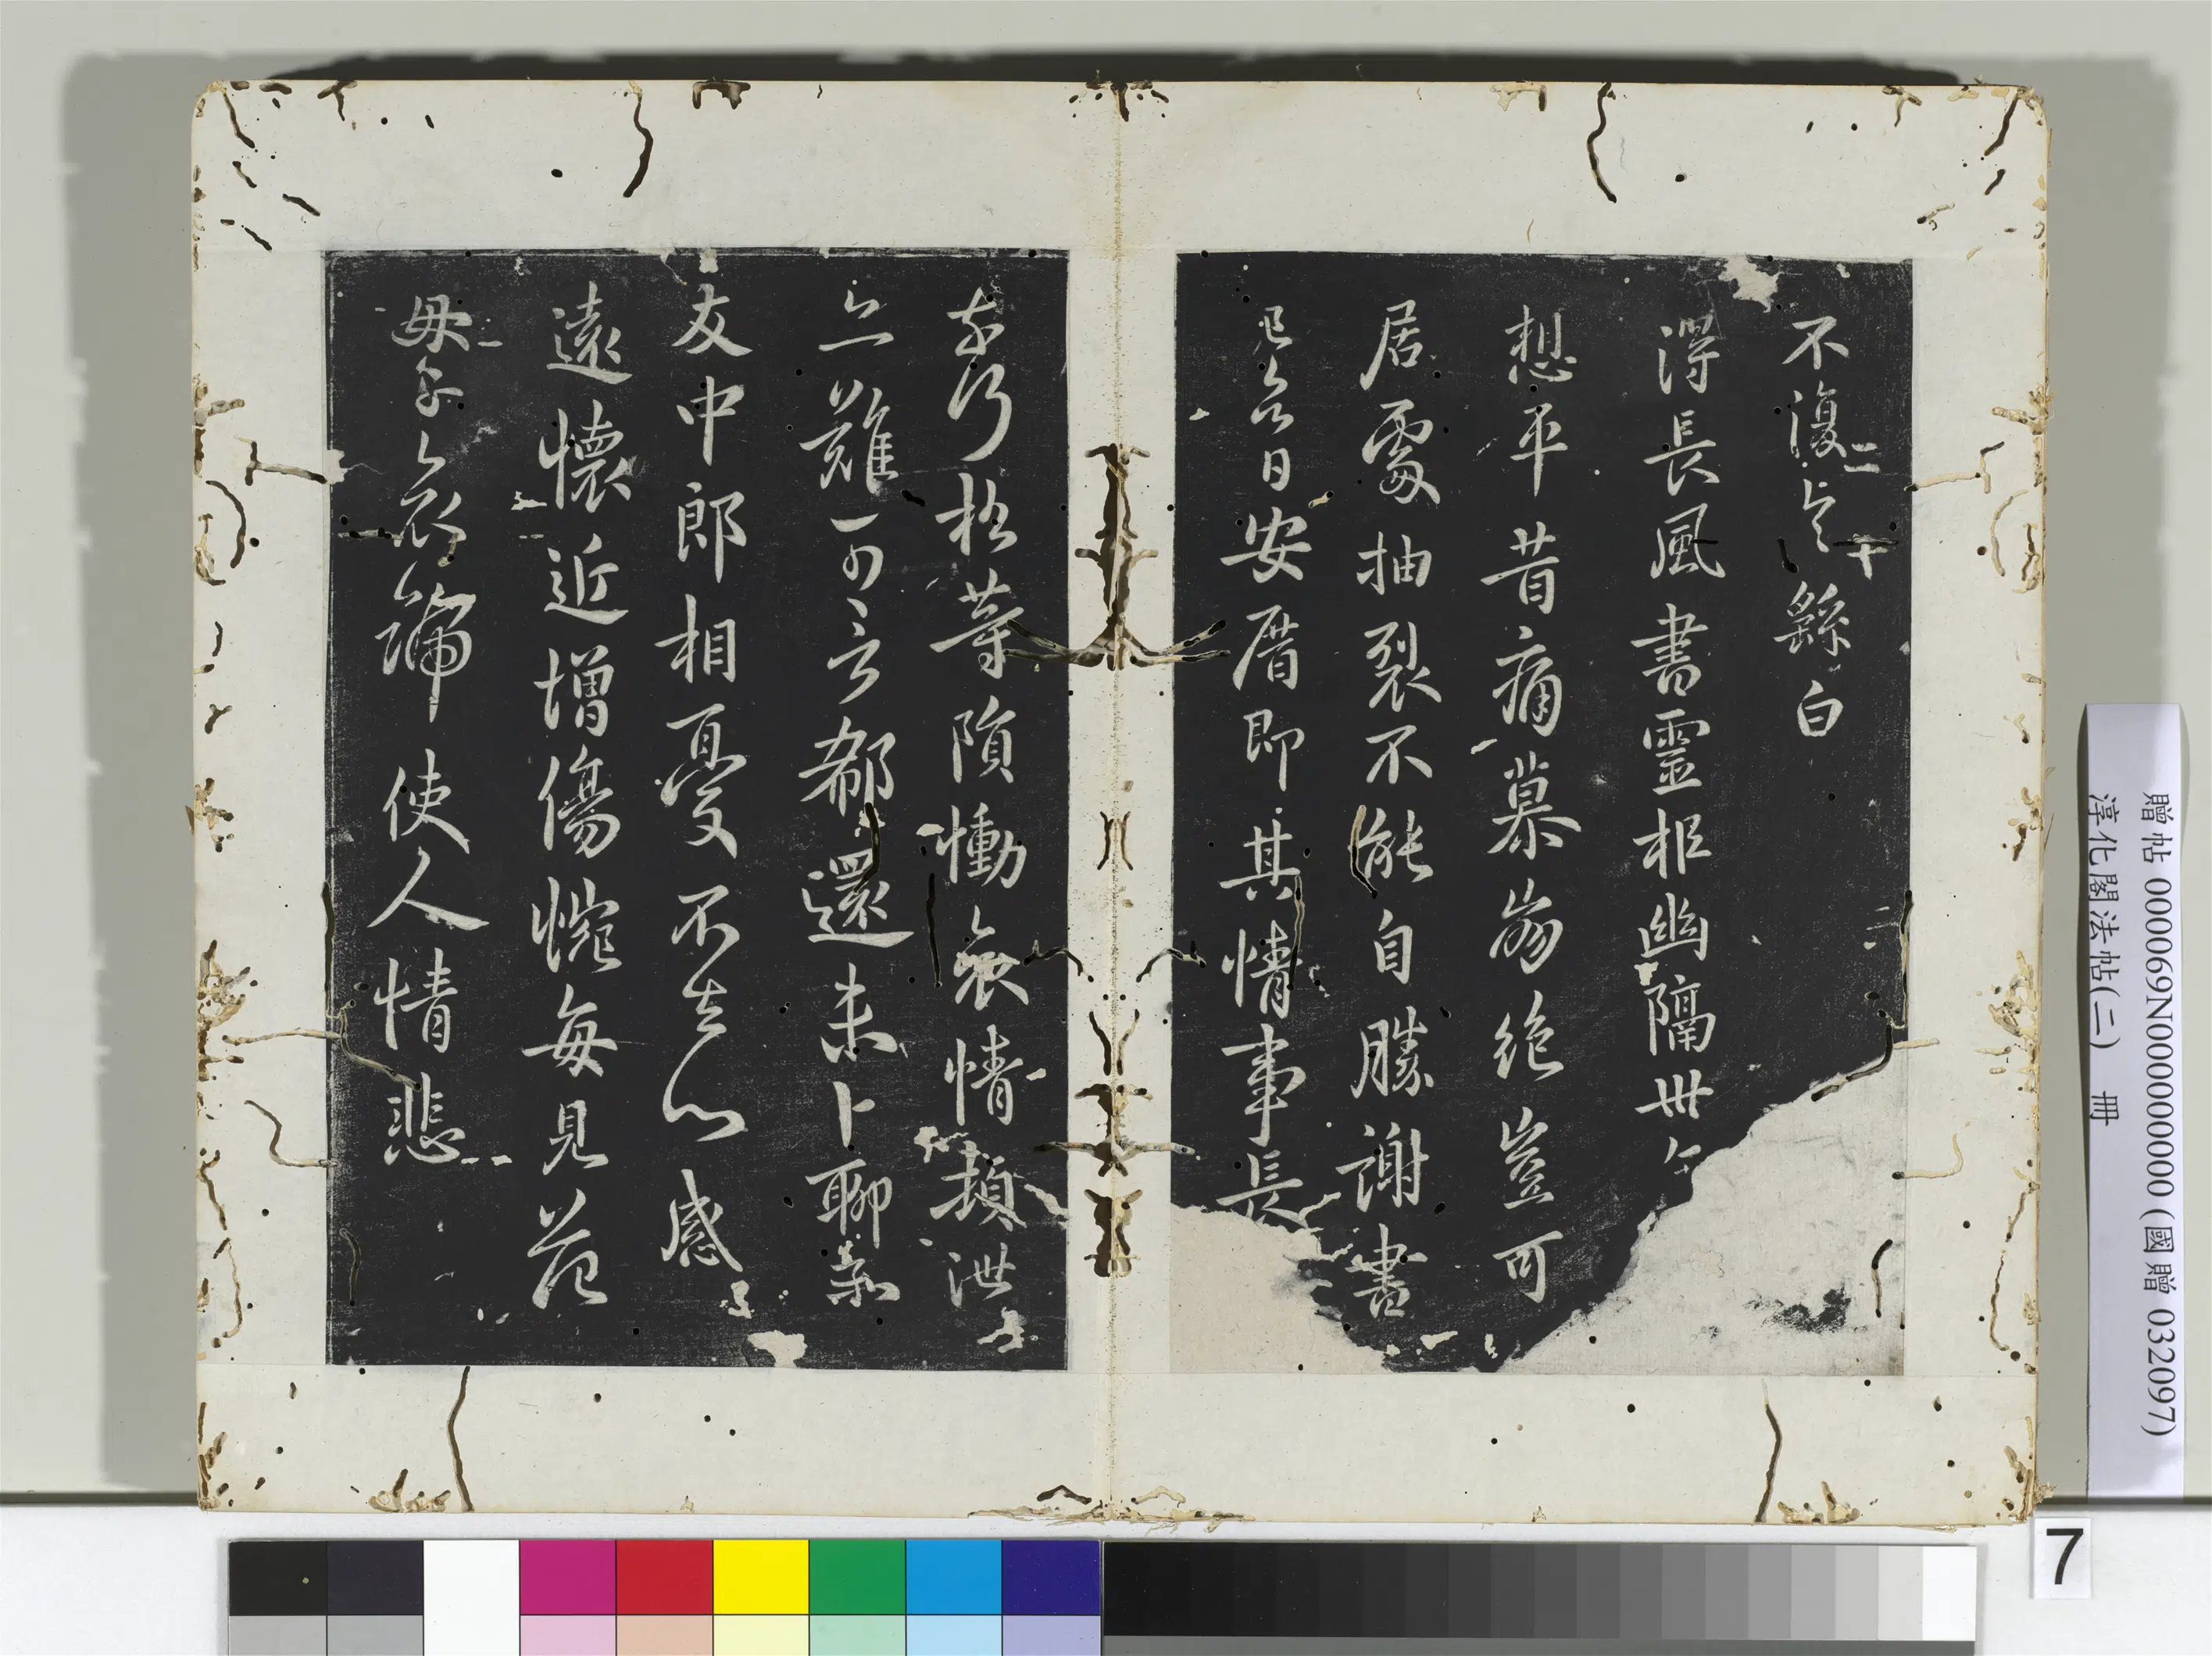 不復具 繇白
二十
得長風書靈柩幽隔卅年
想平昔痛慕崩絕豈可
居處抽裂不能自勝謝書
已 日安厝即其情事長
松等隕慟哀情頓泄
亦難可言郗還未卜聊
友中郎相憂不去心感
遠懷近增傷惋每見范
母子哀號使人情悲
贈帖 000069N000000000 (國贈 032097)
淳化閣法帖(二) 冊
7